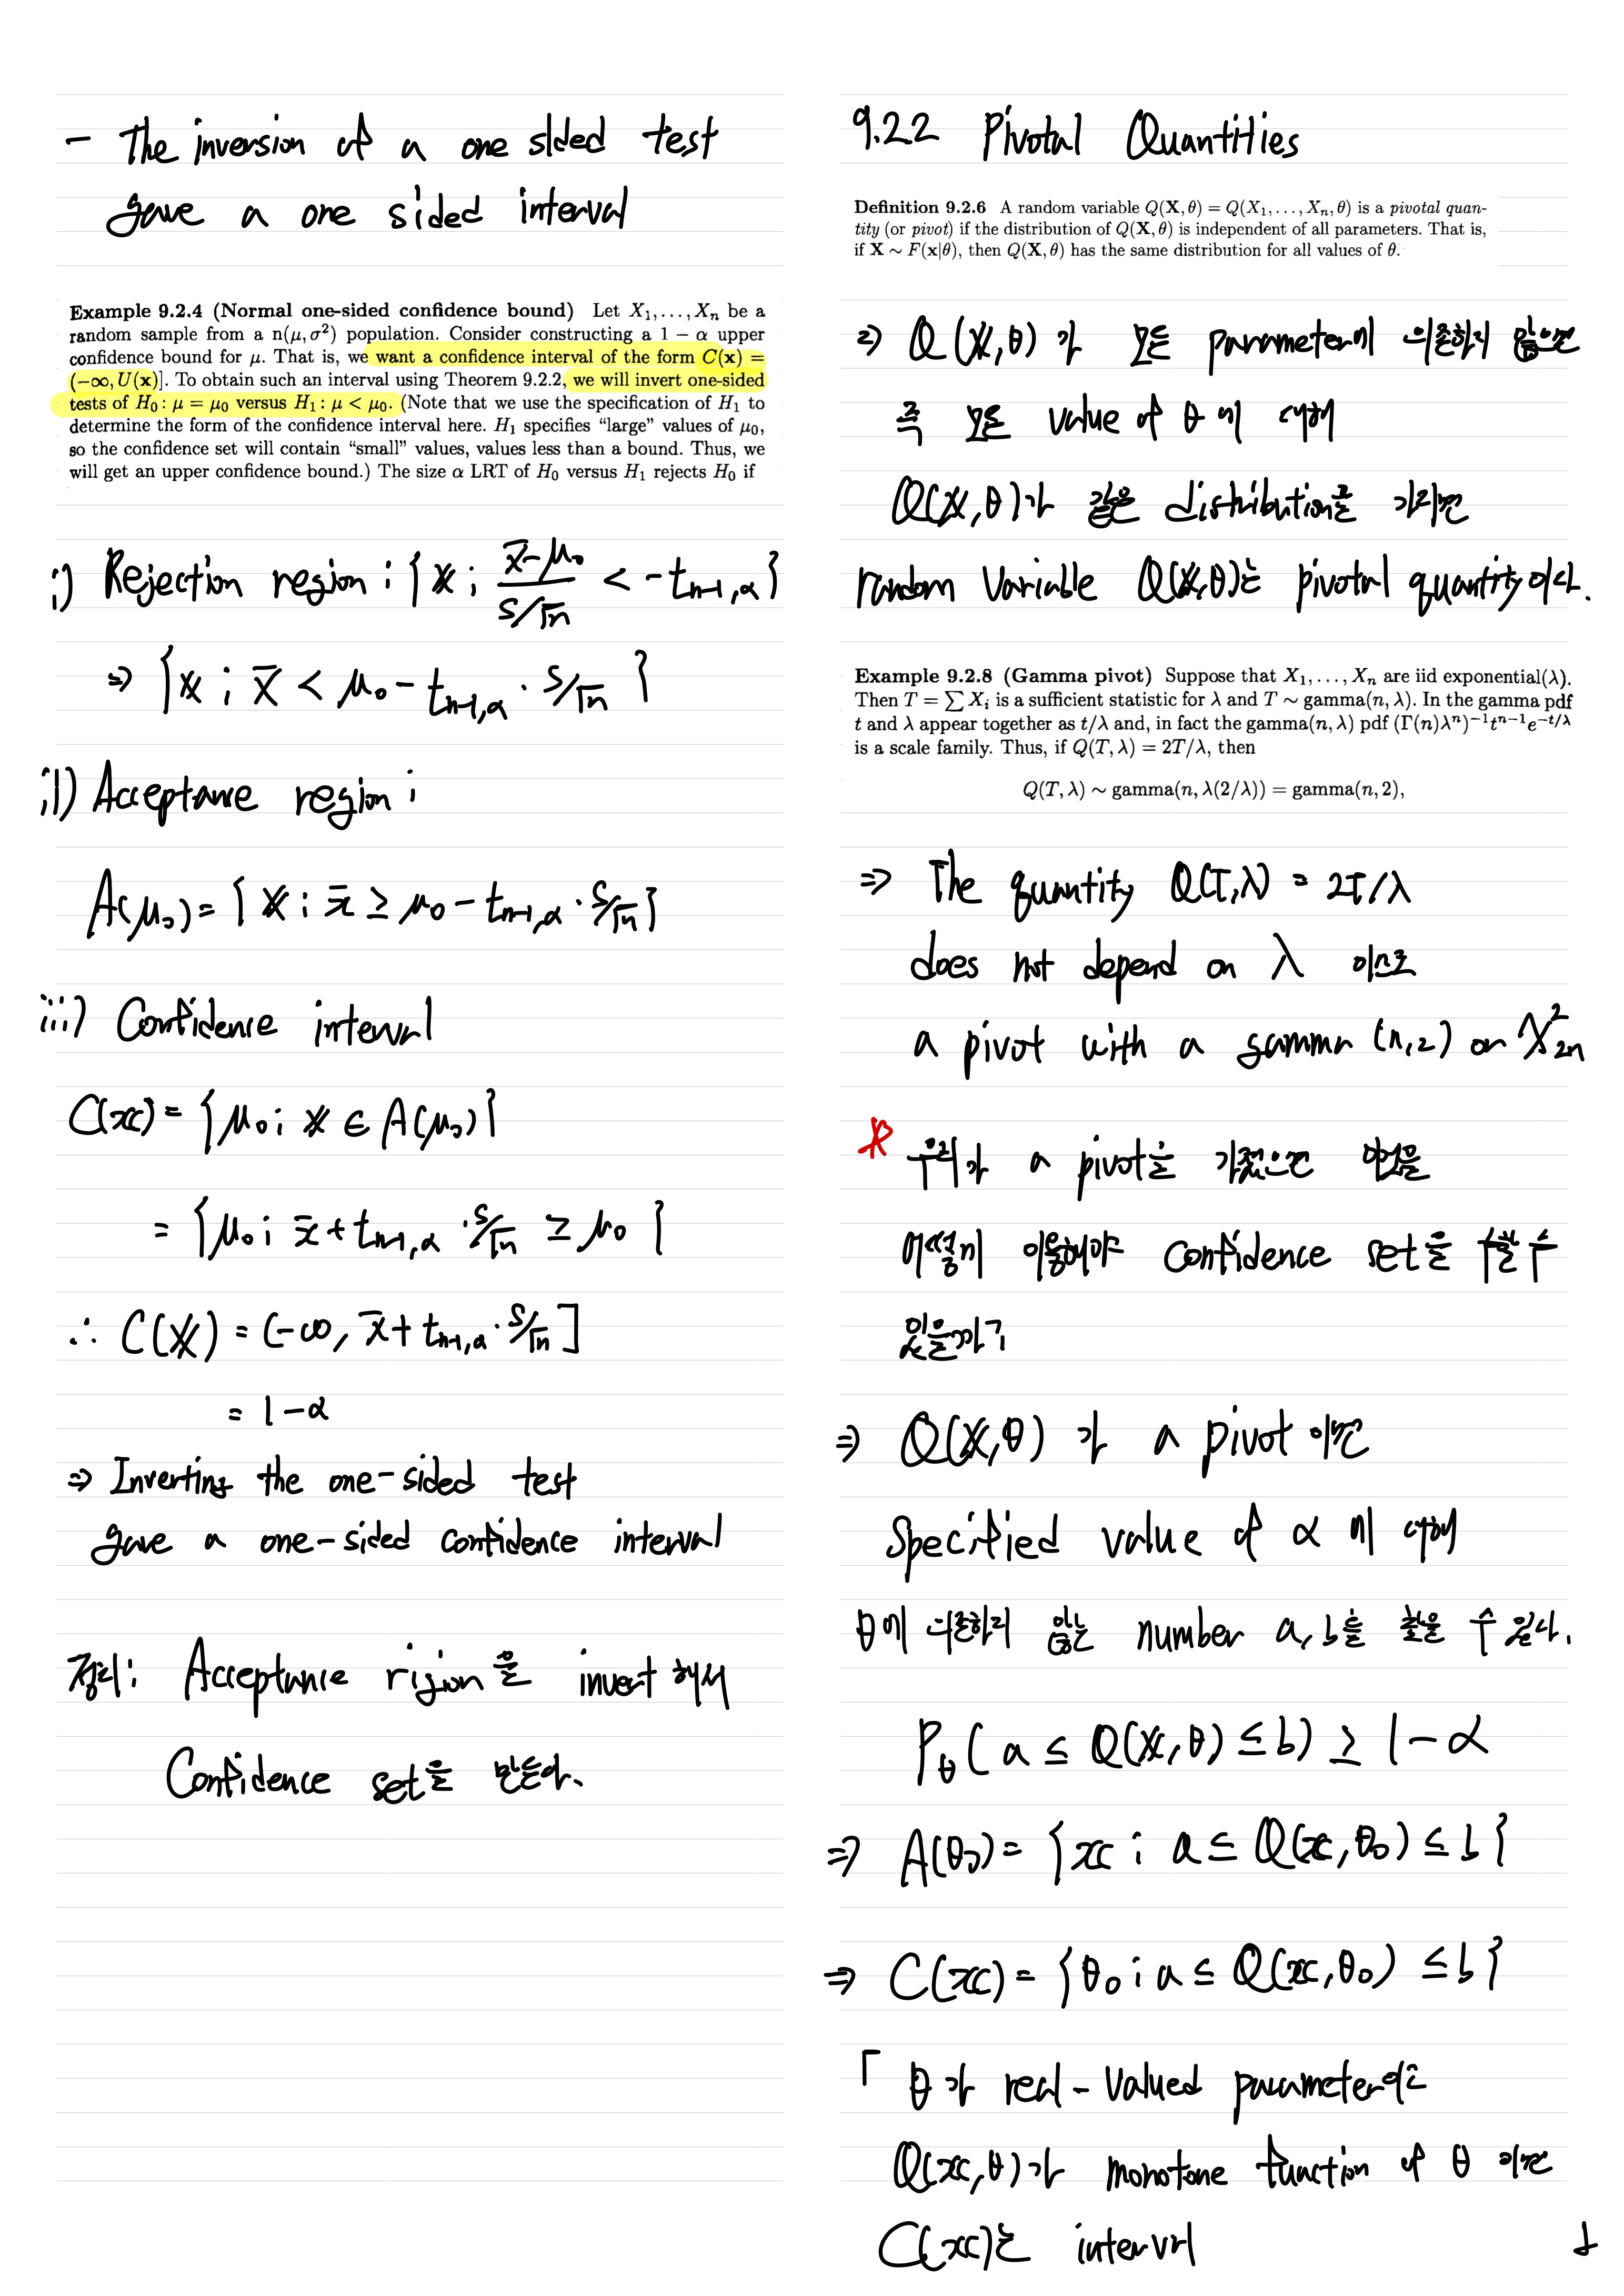 - The inversion of a one sided test
gave a one sided interval
Example 9.2.4 (Normal one-sided confidence bound) Let X₁, . . . , Xₙ be a
random sample from a n(μ, σ²) population. Consider constructing a 1 − α upper
confidence bound for μ. That is, we want a confidence interval of the form C(x) =
(−∞, U(x)]. To obtain such an interval using Theorem 9.2.2, we will invert one-sided
tests of H₀ : μ = μ₀ versus H₁ : μ < μ₀. (Note that we use the specification of H₁ to
determine the form of the confidence interval here. H₁ specifies “large” values of μ₀,
so the confidence set will contain “small” values, values less than a bound. Thus, we
will get an upper confidence bound.) The size α LRT of H₀ versus H₁ rejects H₀ if
i) Rejection region : { x ; (x̄-μ₀)/(S/√n) < -t_{n-1,α} }
⇒ { x ; x̄ < μ₀ - t_{n-1,α} · S/√n }
ii) Acceptance region ;
A(μ₀) = { x ; x̄ ≥ μ₀ - t_{n-1,α} · S/√n }
iii) Confidence interval
C(x) = { μ₀ ; x ∈ A(μ₀) }
= { μ₀ ; x̄ + t_{n-1,α} · S/√n ≥ μ₀ }
∴ C(X) = (-∞, x̄ + t_{n-1,α} · S/√n ]
= 1-α
⇒ Inverting the one-sided test
gave a one-sided confidence interval
정리: Acceptance rigion을 invert 해서
Confidence set을 만든다.
9.2.2 Pivotal Quantities
Definition 9.2.6 A random variable Q(X, θ) = Q(X₁, . . . , Xₙ, θ) is a pivotal quan-
tity (or pivot) if the distribution of Q(X, θ) is independent of all parameters. That is,
if X ∼ F(x|θ), then Q(X, θ) has the same distribution for all values of θ.
⇒ Q(X,θ)가 모든 parameter에 의존하지 않으면
즉 모든 value of θ에 대해
Q(X,θ)가 같은 distribution을 가지면
random variable Q(X,θ)는 pivotal quantity이다.
Example 9.2.8 (Gamma pivot) Suppose that X₁, . . . , Xₙ are iid exponential(λ).
Then T = ∑ Xᵢ is a sufficient statistic for λ and T ∼ gamma(n, λ). In the gamma pdf
t and λ appear together as t/λ and, in fact the gamma(n, λ) pdf (Γ(n)λⁿ)⁻¹tⁿ⁻¹e^{−t/λ}
is a scale family. Thus, if Q(T, λ) = 2T/λ, then
Q(T, λ) ∼ gamma(n, λ(2/λ)) = gamma(n, 2),
⇒ The quantity Q(T,λ) = 2T/λ
does not depend on λ 이므로
a pivot with a gamma (n,2) or X²₂ₙ
* 우리가 a pivot을 가졌으면 이것을
어떻게 이용해야 Confidence set을 구할 수
있을까?
⇒ Q(X,θ)가 a pivot 이면
Specified value of α에 대해
θ에 의존하지 않는 number a, b를 찾을 수 있다.
P_θ( a ≤ Q(X,θ) ≤ b) ≥ 1-α
⇒ A(θ₀) = { x ; a ≤ Q(x,θ₀) ≤ b }
⇒ C(x) = { θ₀ ; a ≤ Q(x,θ₀) ≤ b }
「 θ가 real-valued parameter이고
Q(x,θ)가 monotone function of θ 이면
C(x)는 interval 」